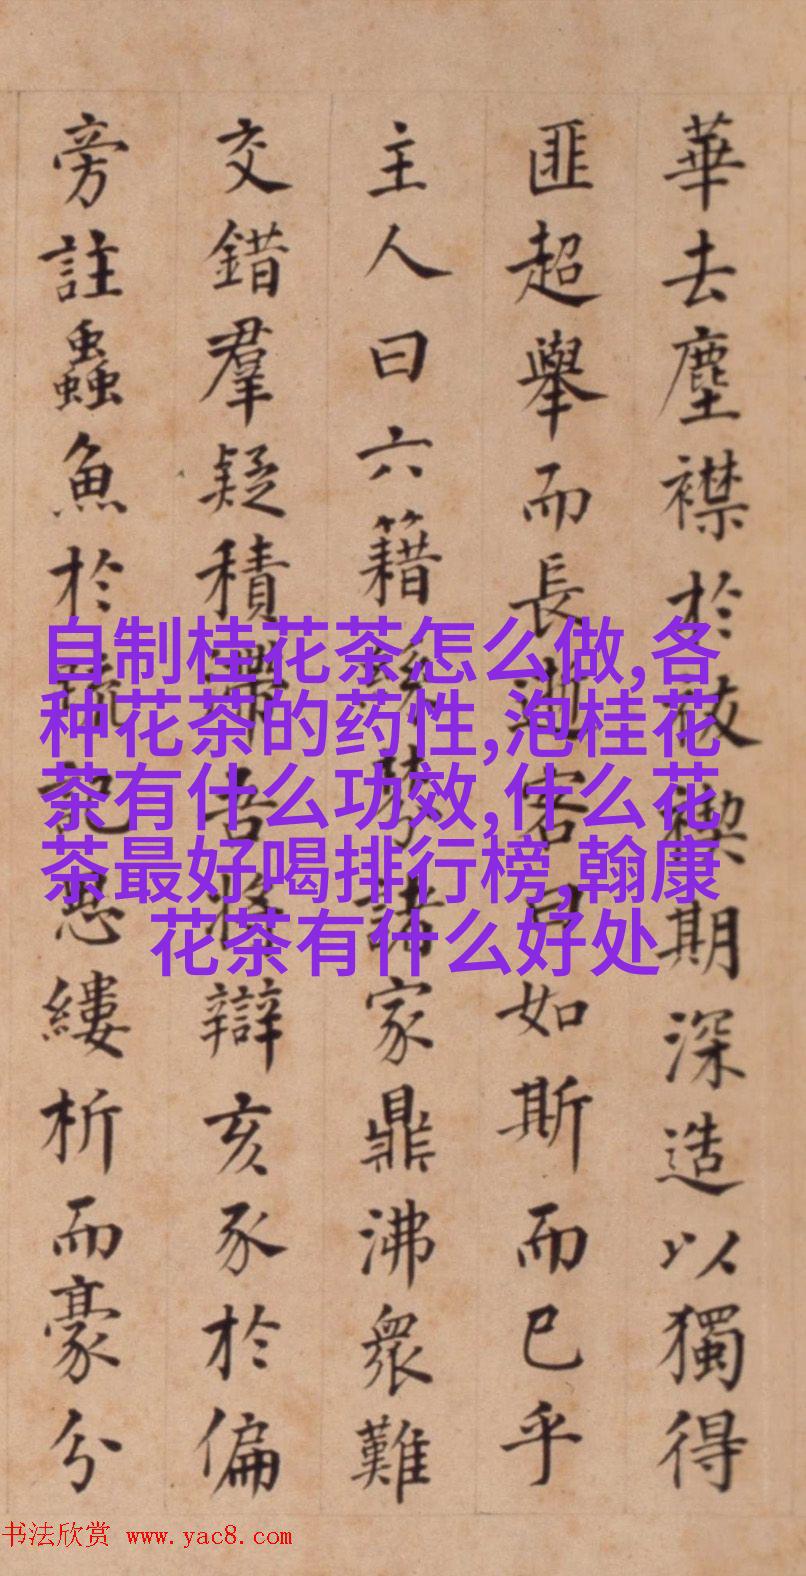 華去塵襟於祓禊期深造以獨得
匪超舉而長逝客曰如斯而已乎
主人曰六籍諸家鼎沸衆難
交錯羣疑積滯吾將辯亥豕於偏
旁註蟲魚於疏記縷析而豪分
自制桂花茶怎么做,各
种花茶的药性,泡桂花
茶有什么功效,什么花
茶最好喝排行榜,翰康
花茶有什么好处
书法欣赏 www.yac8.com